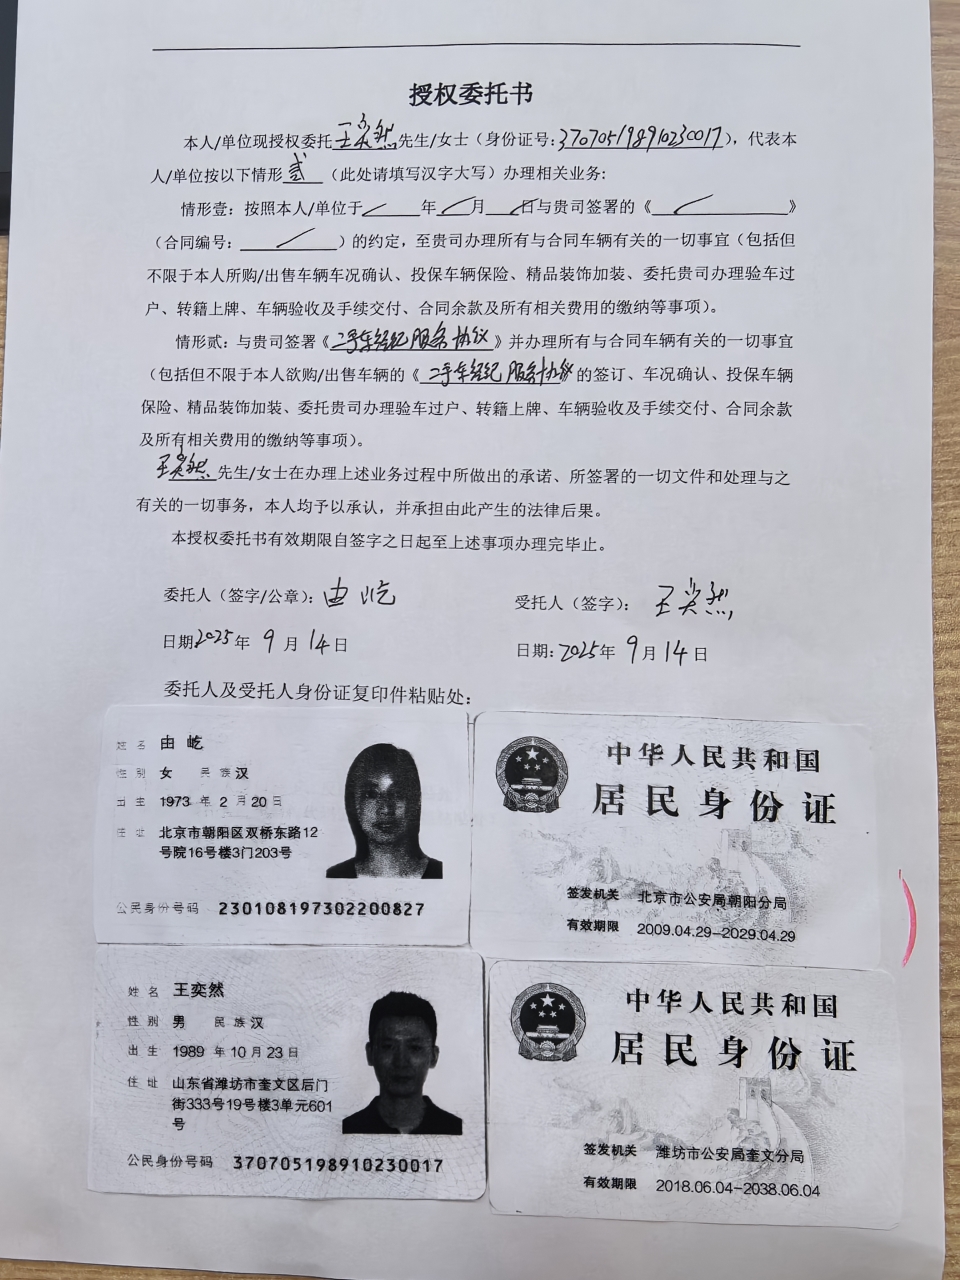 授权委托书
本人/单位现授权委托王奕然先生/女士（身份证号:370705198910230017），代表本
人/单位按以下情形贰（此处请填写汉字大写）办理相关业务:
情形壹：按照本人/单位于 年 月 日与贵司签署的《 》
（合同编号: ）的约定，至贵司办理所有与合同车辆有关的一切事宜（包括但
不限于本人所购/出售车辆车况确认、投保车辆保险、精品装饰加装、委托贵司办理验车过
户、转籍上牌、车辆验收及手续交付、合同余款及所有相关费用的缴纳等事项）。
情形贰：与贵司签署《二手车经纪服务协议》并办理所有与合同车辆有关的一切事宜
（包括但不限于本人欲购/出售车辆的《二手车经纪服务协议》的签订、车况确认、投保车辆
保险、精品装饰加装、委托贵司办理验车过户、转籍上牌、车辆验收及手续交付、合同余款
及所有相关费用的缴纳等事项）。
王奕然先生/女士在办理上述业务过程中所做出的承诺、所签署的一切文件和处理与之
有关的一切事务，本人均予以承认，并承担由此产生的法律后果。
本授权委托书有效期限自签字之日起至上述事项办理完毕止。
委托人（签字/公章）：由屹
受托人（签字）：王奕然
日期2025年9月14日
日期：2025年9月14日
委托人及受托人身份证复印件粘贴处：
姓名 由屹
性别 女 民族 汉
出生 1973年2月20日
住址 北京市朝阳区双桥东路12
号院16号楼3门203号
公民身份号码 230108197302200827
中华人民共和国
居民身份证
签发机关 北京市公安局朝阳分局
有效期限 2009.04.29-2029.04.29
姓名 王奕然
性别 男 民族 汉
出生 1989年10月23日
住址 山东省潍坊市奎文区后门
街333号19号楼3单元601
号
公民身份号码 370705198910230017
中华人民共和国
居民身份证
签发机关 潍坊市公安局奎文分局
有效期限 2018.06.04-2038.06.04